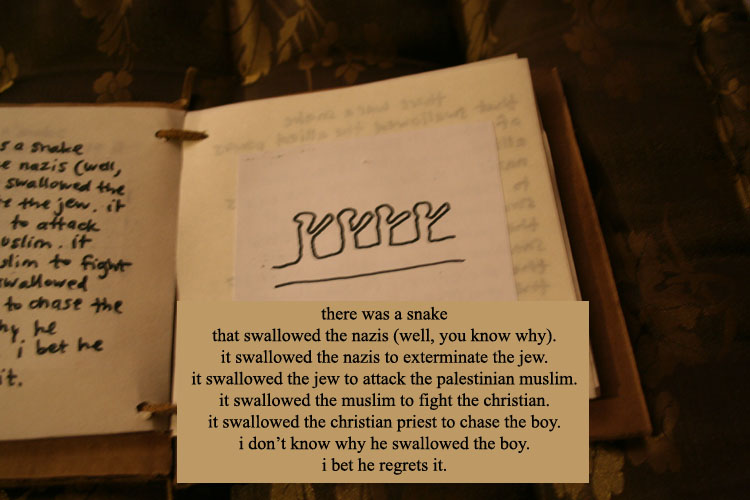 s a snake
e nazis (well,
swallowed the
the jew. it
to attack
uslim. it
slim to fight
swallowed
to chase the
hy he
i bet he
it.
there was a snake
that swallowed the
there was a snake
that swallowed the nazis (well, you know why).
it swallowed the nazis to exterminate the jew.
it swallowed the jew to attack the palestinian muslim.
it swallowed the muslim to fight the christian.
it swallowed the christian priest to chase the boy.
i don't know why he swallowed the boy.
i bet he regrets it.